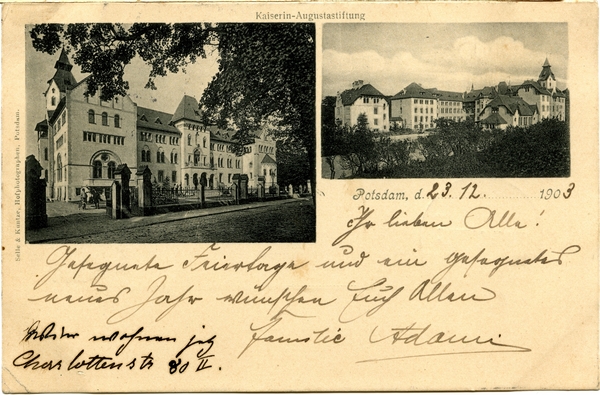 Kaiserin-Augustastiftung
Selle & Kuntze, Hofphotographen, Potsdam.
Potsdam, d. 23. 12. 1903
Ihr lieben Alle!
Gesegnete Feiertage und ein gesegnetes
neues Jahr wünschen Euch Allen
Familie Adami
Wir wohnen jetz
Charlottenstr 80 II.